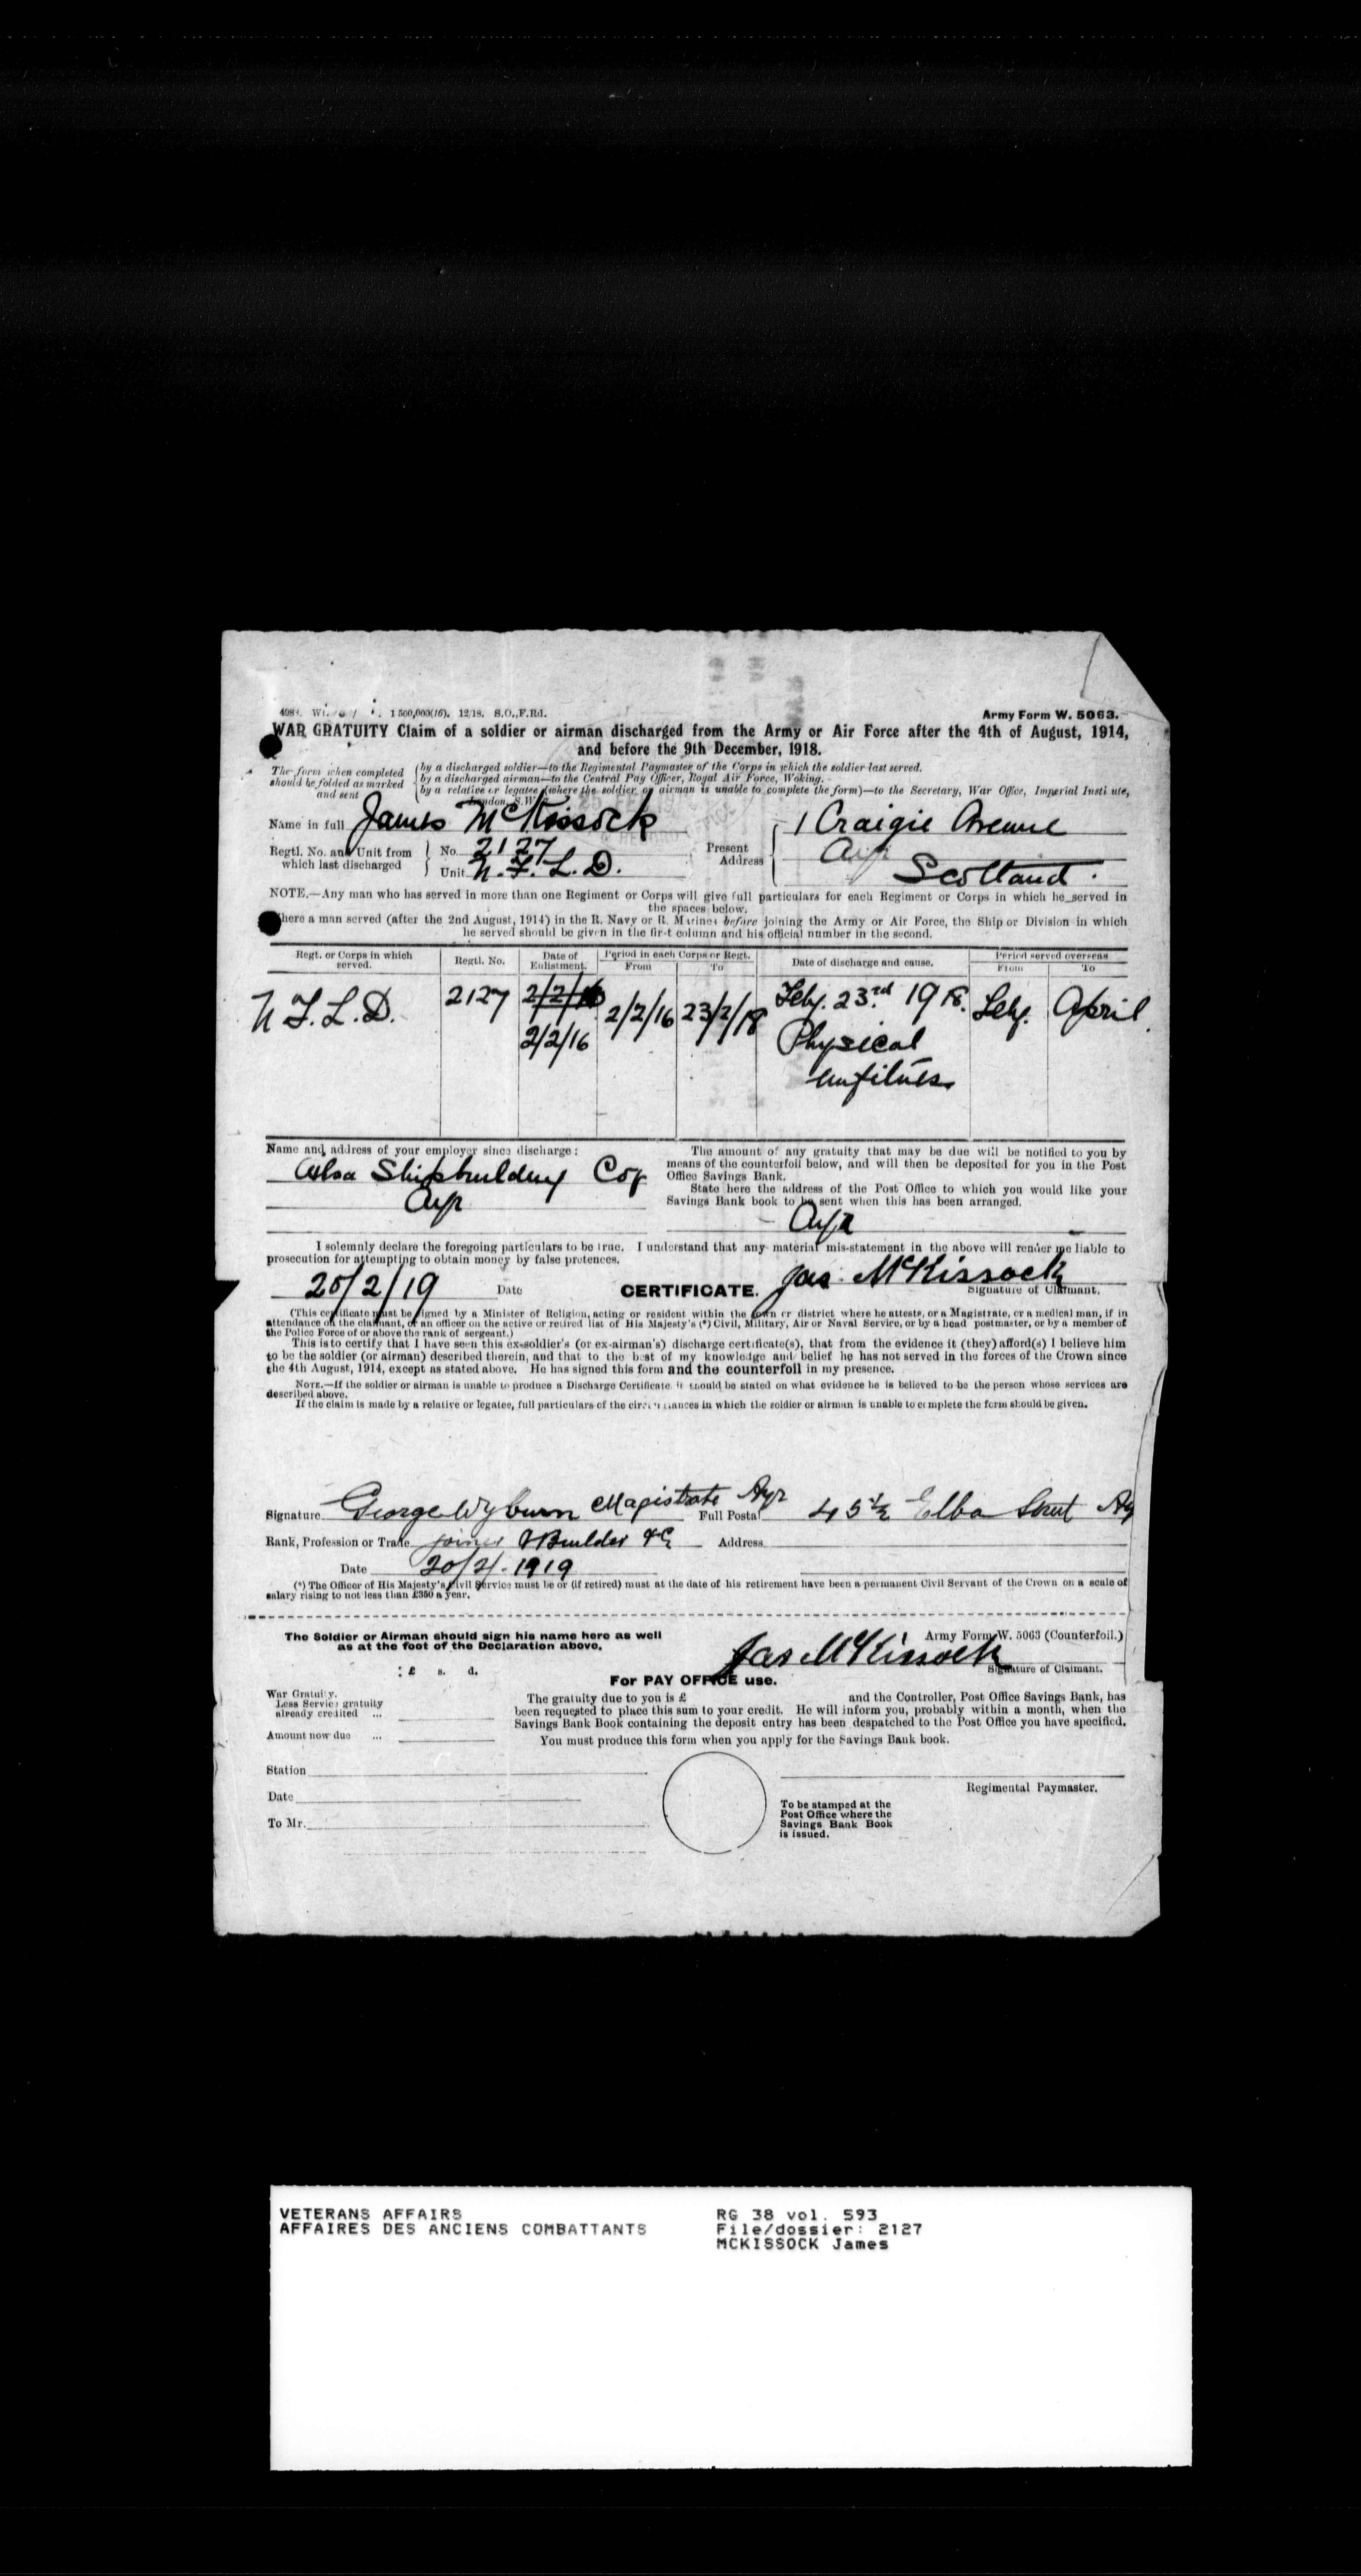 1 500,000(16). 12/18. S.O.,F.Rd.
Army Form W. 5063.
WAR GRATUITY Claim of a soldier or airman discharged from the Army or Air Force after the 4th of August, 1914,
and before the 9th December, 1918.
The form when completed should be folded as marked and sent
by a discharged soldier—to the Regimental Paymaster of the Corps in which the soldier last served.
by a discharged airman—to the Central Pay Officer, Royal Air Force, Woking.
by a relative or legatee (where the soldier or airman is unable to complete the form)—to the Secretary, War Office, Imperial Insti ute,
London, S.W.
Name in full James McKissock
Present Address 1 Craigie Avenue
Ayr
Scotland.
Regtl. No. and Unit from which last discharged
No. 2127
Unit N.F.L.D.
NOTE.—Any man who has served in more than one Regiment or Corps will give full particulars for each Regiment or Corps in which he served in
the spaces below.
here a man served (after the 2nd August, 1914) in the R. Navy or R. Marines before joining the Army or Air Force, the Ship or Division in which
he served should be given in the first column and his official number in the second.
Regt. or Corps in which served. Regtl. No. Date of Enlistment. Period in each Corps or Regt. From To Date of discharge and cause. Period served overseas From To
N.F.L.D. 2127 2/2/16 2/2/16 23/2/18 Feby. 23rd 1918. Feby. April.
2/2/16 Physical
unfitness
Name and address of your employer since discharge:
Ailsa Shipbuilding Coy
Ayr
The amount of any gratuity that may be due will be notified to you by
means of the counterfoil below, and will then be deposited for you in the Post
Office Savings Bank.
State here the address of the Post Office to which you would like your
Savings Bank book to be sent when this has been arranged.
Ayr
I solemnly declare the foregoing particulars to be true. I understand that any material mis-statement in the above will render me liable to
prosecution for attempting to obtain money by false pretences.
20/2/19 Date
CERTIFICATE.
Jas. McKissock
Signature of Claimant.
(This certificate must be signed by a Minister of Religion, acting or resident within the town or district where he attests, or a Magistrate, or a medical man, if in
attendance on the claimant, or an officer on the active or retired list of His Majesty's (*) Civil, Military, Air or Naval Service, or by a head postmaster, or by a member of
the Police Force of or above the rank of sergeant.)
This is to certify that I have seen this ex-soldier's (or ex-airman's) discharge certificate(s), that from the evidence it (they) afford(s) I believe him
to be the soldier (or airman) described therein, and that to the best of my knowledge and belief he has not served in the forces of the Crown since
the 4th August, 1914, except as stated above. He has signed this form and the counterfoil in my presence.
NOTE.—If the soldier or airman is unable to produce a Discharge Certificate it should be stated on what evidence he is believed to be the person whose services are
described above.
If the claim is made by a relative or legatee, full particulars of the circumstances in which the soldier or airman is unable to complete the form should be given.
Signature George Wyburn Magistrate Ayr
Full Postal Address 45 1/2 Elba Street Ay
Rank, Profession or Trade joiner & Builder &c
Date 20/2/-1919
(*) The Officer of His Majesty's Civil Service must be or (if retired) must at the date of his retirement have been a permanent Civil Servant of the Crown on a scale of
salary rising to not less than £350 a year.
The Soldier or Airman should sign his name here as well
as at the foot of the Declaration above.
Army Form W. 5063 (Counterfoil.)
Jas McKissock
Signature of Claimant.
£ s. d.
For PAY OFFICE use.
War Gratuity.
Less Service gratuity
already credited ...
Amount now due ...
The gratuity due to you is £ and the Controller, Post Office Savings Bank, has
been requested to place this sum to your credit. He will inform you, probably within a month, when the
Savings Bank Book containing the deposit entry has been despatched to the Post Office you have specified.
You must produce this form when you apply for the Savings Bank book.
Station
Date
To Mr.
Regimental Paymaster.
To be stamped at the
Post Office where the
Savings Bank Book
is issued.
VETERANS AFFAIRS
AFFAIRES DES ANCIENS COMBATTANTS
RG 38 vol. 593
File/dossier: 2127
MCKISSOCK James